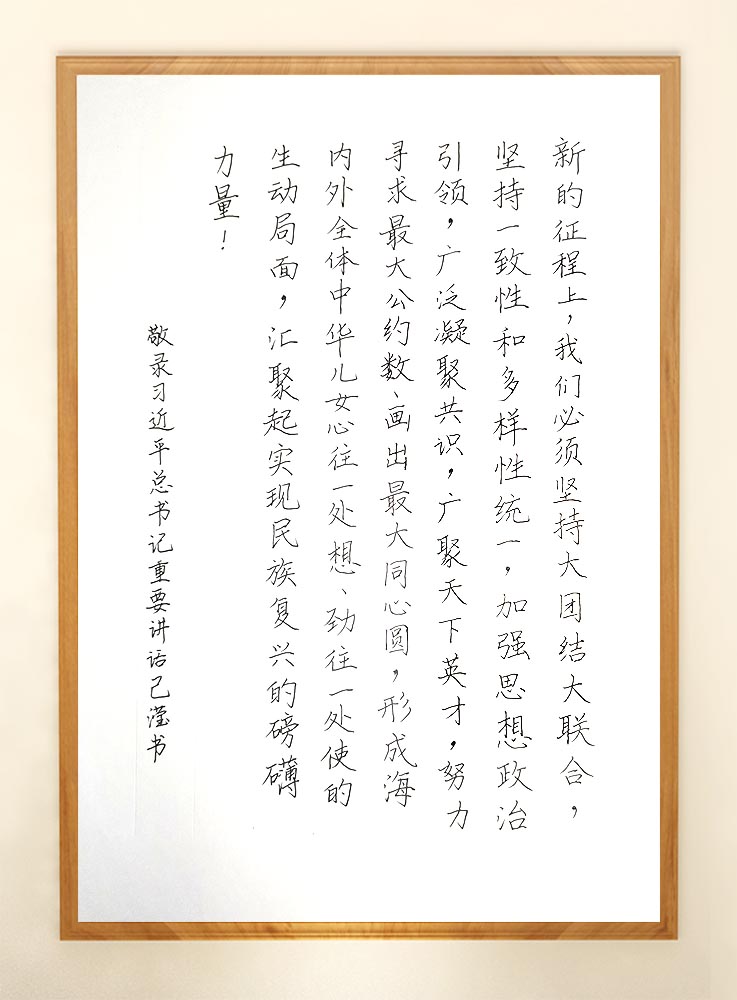 新的征程上，我们必须坚持大团结大联合，
坚持一致性和多样性统一，加强思想政治
引领，广泛凝聚共识，广聚天下英才，努力
寻求最大公约数、画出最大同心圆，形成海
内外全体中华儿女心往一处想、劲往一处使的
生动局面，汇聚起实现民族复兴的磅礴
力量！
敬录习近平总书记重要讲话己滢书